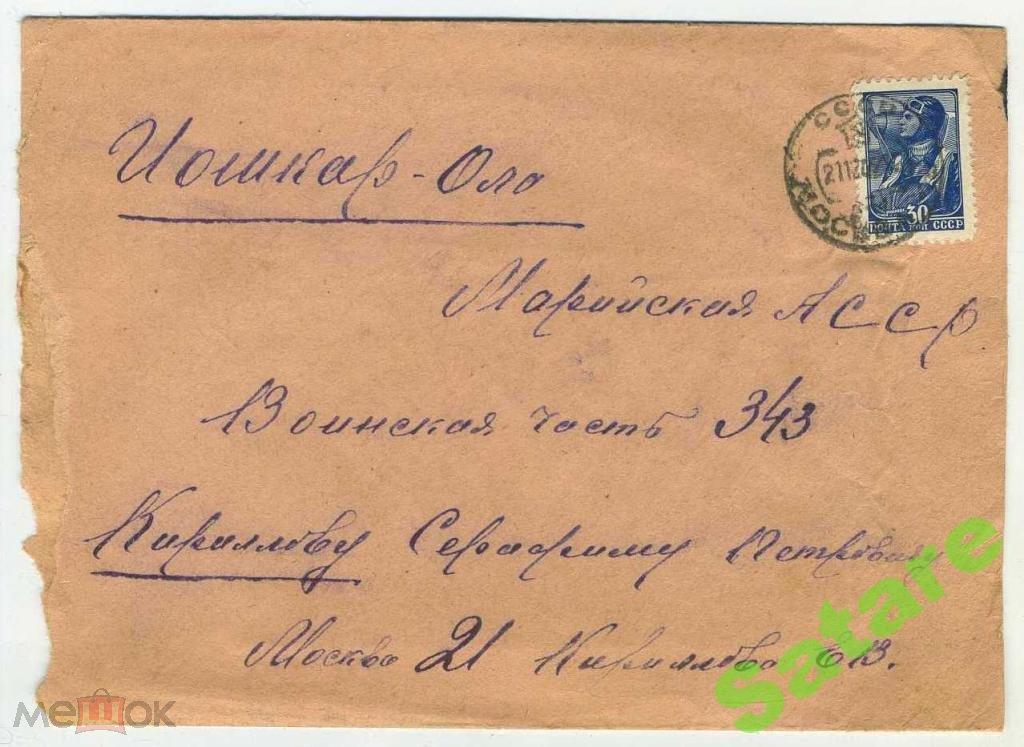 Йошкар-Ола
СССР
МОСКВА
30
ПОЧТА КОП СССР
Марийская АССР
Воинская часть 343
Кириллову Серафиму Петровичу
Москва 21 Кириллова Е.В.
Satare
мешок